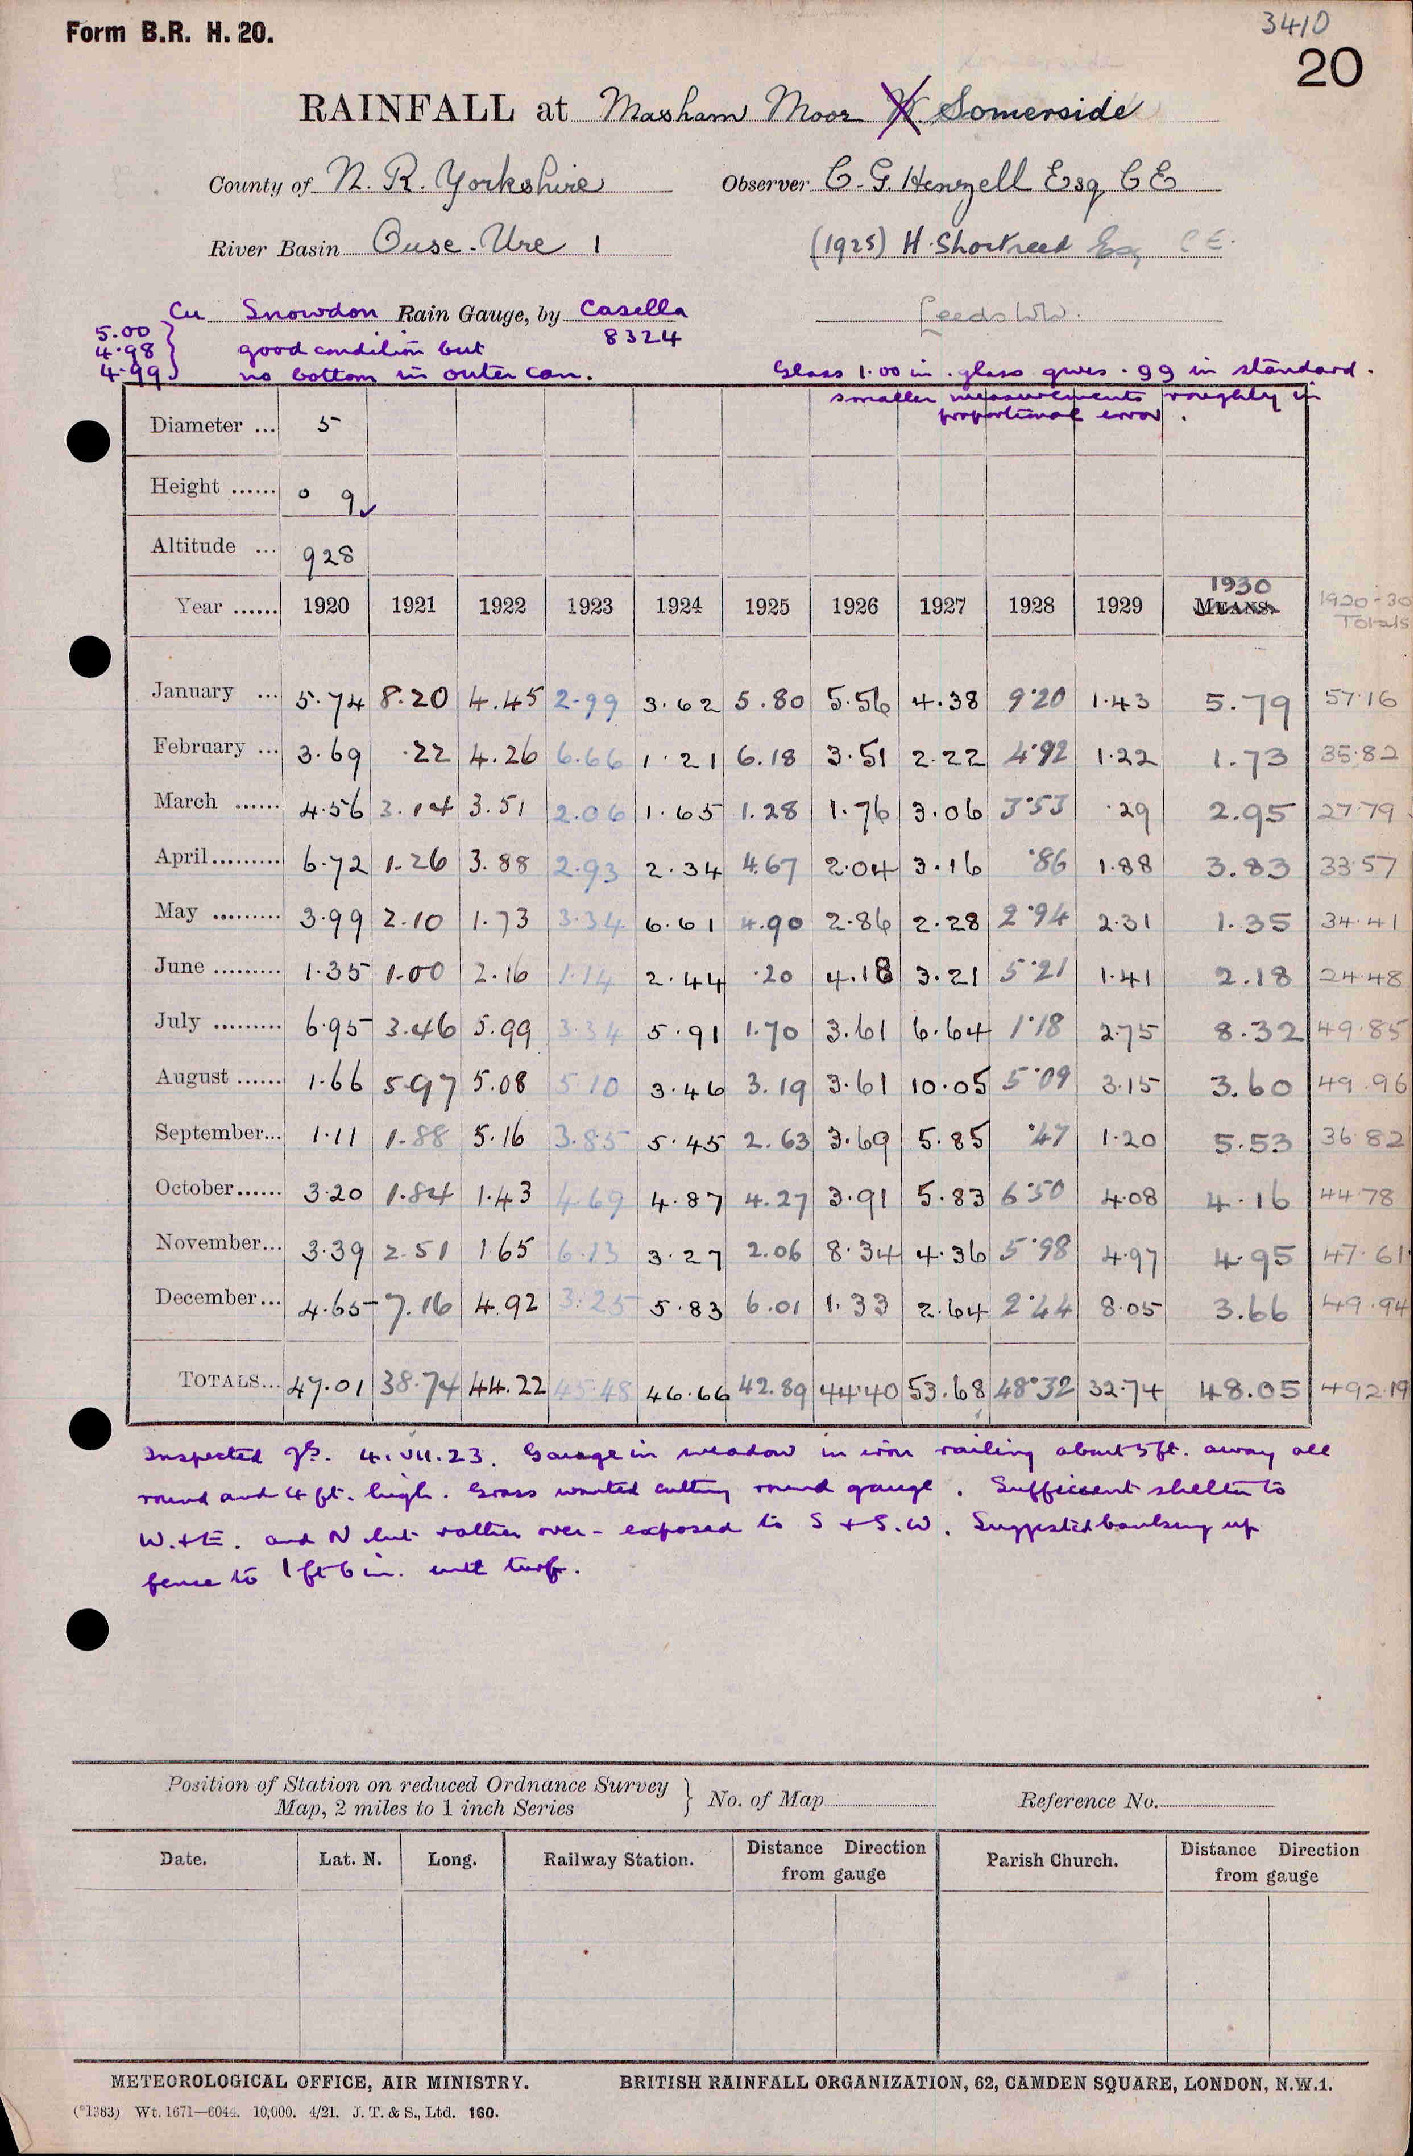 Form B.R. H. 20.
3410
20
RAINFALL at Masham Moor W Somerside
County of N. R. Yorkshire Observer C. G. Henzell Esq, C E
River Basin Ouse - Ure 1 (1925) H. Shortreed Esq C E.
Cu Snowdon Rain Gauge, by Casella Leeds WW.
5.00 8324
4.98 good condition but
4.99 no bottom in outer can. Glass 1.00 in. glass gives .99 in standard.
smaller measurements roughly in
proportional error.
Diameter ... 5
Height ...... 0 9
Altitude ... 928
Year ...... 1920 1921 1922 1923 1924 1925 1926 1927 1928 1929 1930 MEANS. 1920-30 Totals
January ... 5.74 8.20 4.45 2.99 3.62 5.80 5.56 4.38 9.20 1.43 5.79 57.16
February ... 3.69 .22 4.26 6.66 1.21 6.18 3.51 2.22 4.92 1.22 1.73 35.82
March ...... 4.56 3.14 3.51 2.06 1.65 1.28 1.76 3.06 3.53 .29 2.95 27.79
April......... 6.72 1.26 3.88 2.93 2.34 4.67 2.04 3.16 .86 1.88 3.83 33.57
May ......... 3.99 2.10 1.73 3.34 6.61 4.90 2.86 2.28 2.94 2.31 1.35 34.41
June ......... 1.35 1.00 2.16 1.14 2.44 .20 4.18 3.21 5.21 1.41 2.18 24.48
July ......... 6.95 3.46 5.99 3.34 5.91 1.70 3.61 6.64 1.18 2.75 8.32 49.85
August ...... 1.66 5.97 5.08 5.10 3.46 3.19 3.61 10.05 5.09 3.15 3.60 49.96
September... 1.11 1.88 5.16 3.85 5.45 2.63 3.69 5.85 .47 1.20 5.53 36.82
October...... 3.20 1.84 1.43 4.69 4.87 4.27 3.91 5.83 6.50 4.08 4.16 44.78
November... 3.39 2.51 1 65 6.13 3.27 2.06 8.34 4.36 5.98 4.97 4.95 47.61
December... 4.65 7.16 4.92 3.25 5.83 6.01 1.33 2.64 2.44 8.05 3.66 49.94
TOTALS... 47.01 38.74 44.22 45.48 46.66 42.89 44.40 53.68 48.32 32.74 48.05 492.19
Inspected 4.VII.23. Gauge in meadow in iron railing about 5 ft. away all
round and 4 ft. high. Grass wanted cutting round gauge. Sufficient shelter to
W. + E. and N but rather over-exposed to S + S.W. Suggested banking up
fence to 1 ft 6 in. with turf.
Position of Station on reduced Ordnance Survey
Map, 2 miles to 1 inch Series } No. of Map Reference No.
Date. Lat. N. Long. Railway Station. Distance Direction from gauge Parish Church. Distance Direction from gauge
METEOROLOGICAL OFFICE, AIR MINISTRY. BRITISH RAINFALL ORGANIZATION, 62, CAMDEN SQUARE, LONDON, N.W.1.
(*1383) Wt. 1671—6044. 10,000. 4/21. J. T. & S., Ltd. 160.